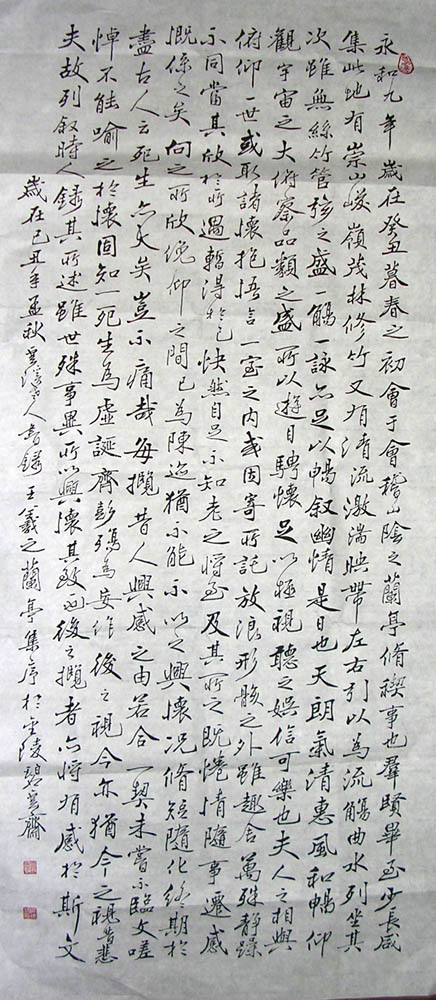 永和九年歲在癸丑暮春之初會于會稽山陰之蘭亭脩禊事也羣賢畢至少長咸
集此地有崇山峻嶺茂林修竹又有清流激湍映帶左右引以為流觴曲水列坐其
次雖無絲竹管弦之盛一觴一詠亦足以暢叙幽情是日也天朗氣清惠風和暢仰
觀宇宙之大俯察品類之盛所以遊目騁懷足以極視聽之娛信可樂也夫人之相與
俯仰一世或取諸懷抱悟言一室之內或因寄所託放浪形骸之外雖趣舍萬殊靜躁
不同當其欣於所遇暫得於己快然自足不知老之將至及其所之既惓情隨事遷感
慨係之矣向之所欣俛仰之間已為陳迹猶不能不以之興懷況脩短隨化終期於
盡古人云死生亦大矣豈不痛哉每攬昔人興感之由若合一契未嘗不臨文嗟
悼不能喻之於懷固知一死生為虛誕齊彭殤為妄作後之視今亦猶今之視昔悲
夫故列叙時人錄其所述雖世殊事異所以興懷其致一也後之攬者亦將有感於斯文
歲在己丑年孟秋人書錄王羲之蘭亭集序於金陵碧雲齋